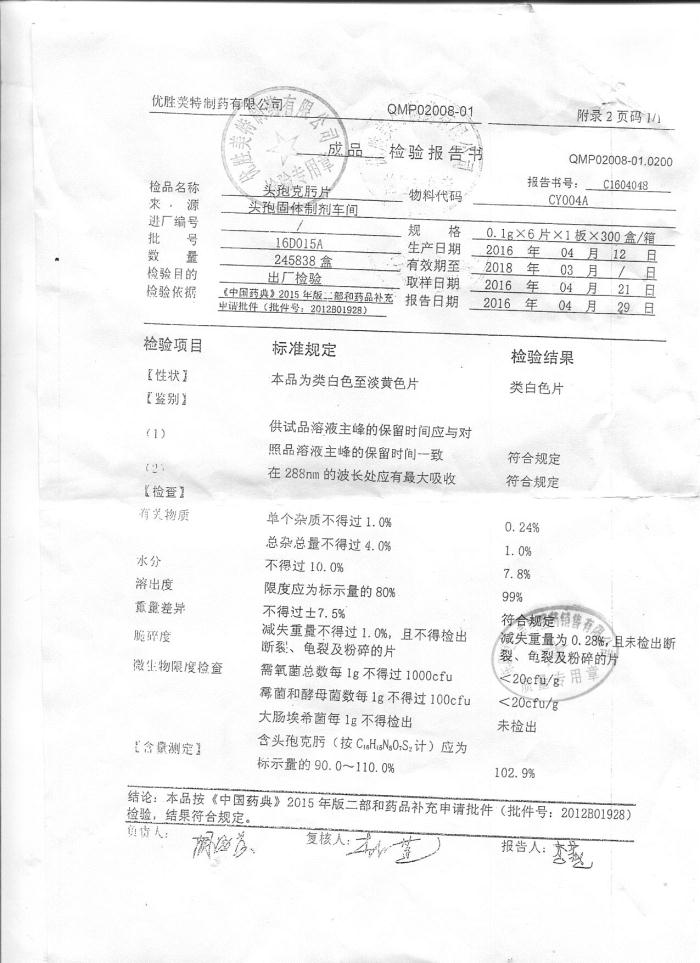 优胜美特制药有限公司 QMP02008-01 附录 2 页码 1/1
成品 检验报告书
QMP02008-01.0200
报告书号： C1604048
检品名称 头孢克肟片 物料代码 CY004A
来 . 源 头孢固体制剂车间
进厂编号 / 规 格 0.1g×6片×1板×300盒/箱
批 号 16D015A 生产日期 2016 年 04 月 12 日
数 量 245838 盒 有效期至 2018 年 03 月 / 日
检验目的 出厂检验 取样日期 2016 年 04 月 21 日
检验依据 《中国药典》2015 年版二部和药品补充 报告日期 2016 年 04 月 29 日
申请批件（批件号：2012B01928）
检验项目 标准规定 检验结果
【性状】 本品为类白色至淡黄色片 类白色片
【鉴别】
(1) 供试品溶液主峰的保留时间应与对
照品溶液主峰的保留时间一致 符合规定
(2) 在 288nm 的波长处应有最大吸收 符合规定
【检查】
有关物质 单个杂质不得过 1.0% 0.24%
总杂总量不得过 4.0% 1.0%
水分 不得过 10.0% 7.8%
溶出度 限度应为标示量的 80% 99%
重量差异 不得过±7.5% 符合规定
脆碎度 减失重量不得过 1.0%，且不得检出 减失重量为 0.28%，且未检出断
断裂、龟裂及粉碎的片 裂、龟裂及粉碎的片
微生物限度检查 需氧菌总数每 1g 不得过 1000cfu <20cfu/g
霉菌和酵母菌数每 1g 不得过 100cfu <20cfu/g
大肠埃希菌每 1g 不得检出 未检出
【含量测定】 含头孢克肟（按 C₁₆H₁₅N₅O₇S₂ 计）应为
标示量的 90.0～110.0% 102.9%
结论：本品按《中国药典》2015 年版二部和药品补充申请批件（批件号：2012B01928）
检验，结果符合规定。
负责人： 复核人： 报告人：
检验专用章
质量专用章